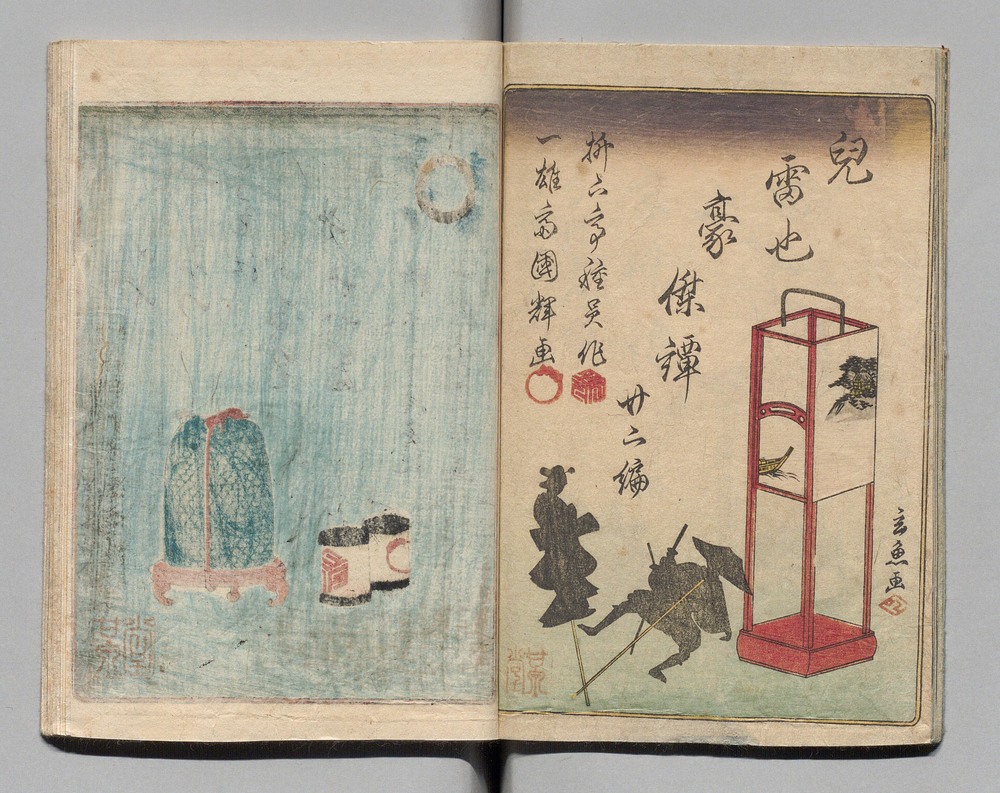 兒
雷也
豪
傑
譚
廿二編
柳六亭種員作
一雄齋國輝画
玄魚画